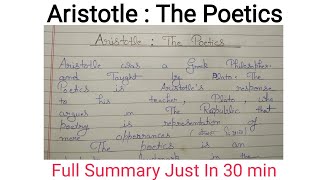 Aristotle : The Poetics
Aristotle : The Poetics
Aristotle was a Greek Philosopher
and Taught by Plato. The
Poetics is Aristotle's response
to his teacher, Plato, who
argues in The Republic that
poetry is representation of
mere appearances
The poetics is an
in the
Full Summary Just In 30 min